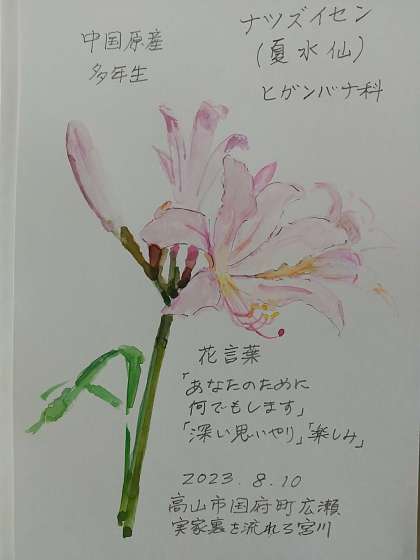 中国原産
多年生
ナツズイセン
(夏水仙)
ヒガンバナ科
花言葉
「あなたのために
何でもします」
「深い思いやり」「楽しみ」
2023.8.10
高山市国府町広瀬
実家裏を流れる宮川